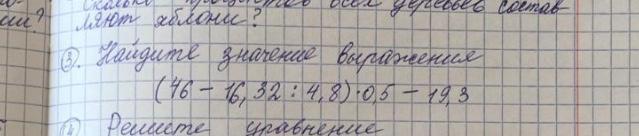 сколько процентов всех деревьев состав
ляют яблони?
③. Найдите значение выражения
(46 - 16,32 : 4,8) · 0,5 - 19,3
④. Решите уравнение